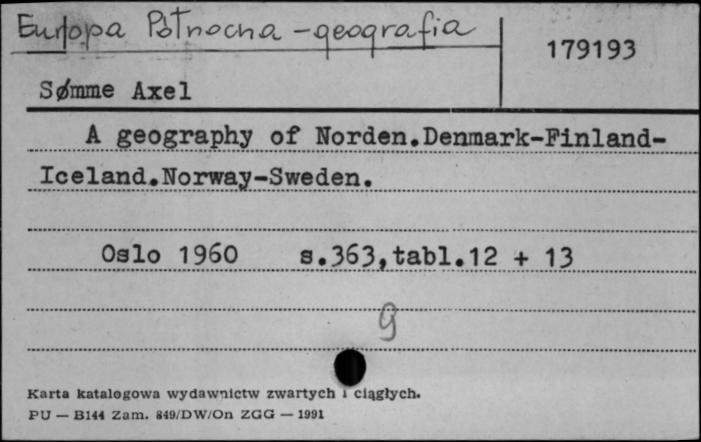 Europa Północna - geografia
179193
Sømme Axel
A geography of Norden.Denmark-Finland-
Iceland.Norway-Sweden.
Oslo 1960 s.363,tabl.12 + 13
g
Karta katalogowa wydawnictw zwartych i ciągłych.
PU — B144 Zam. 849/DW/On ZGG — 1991